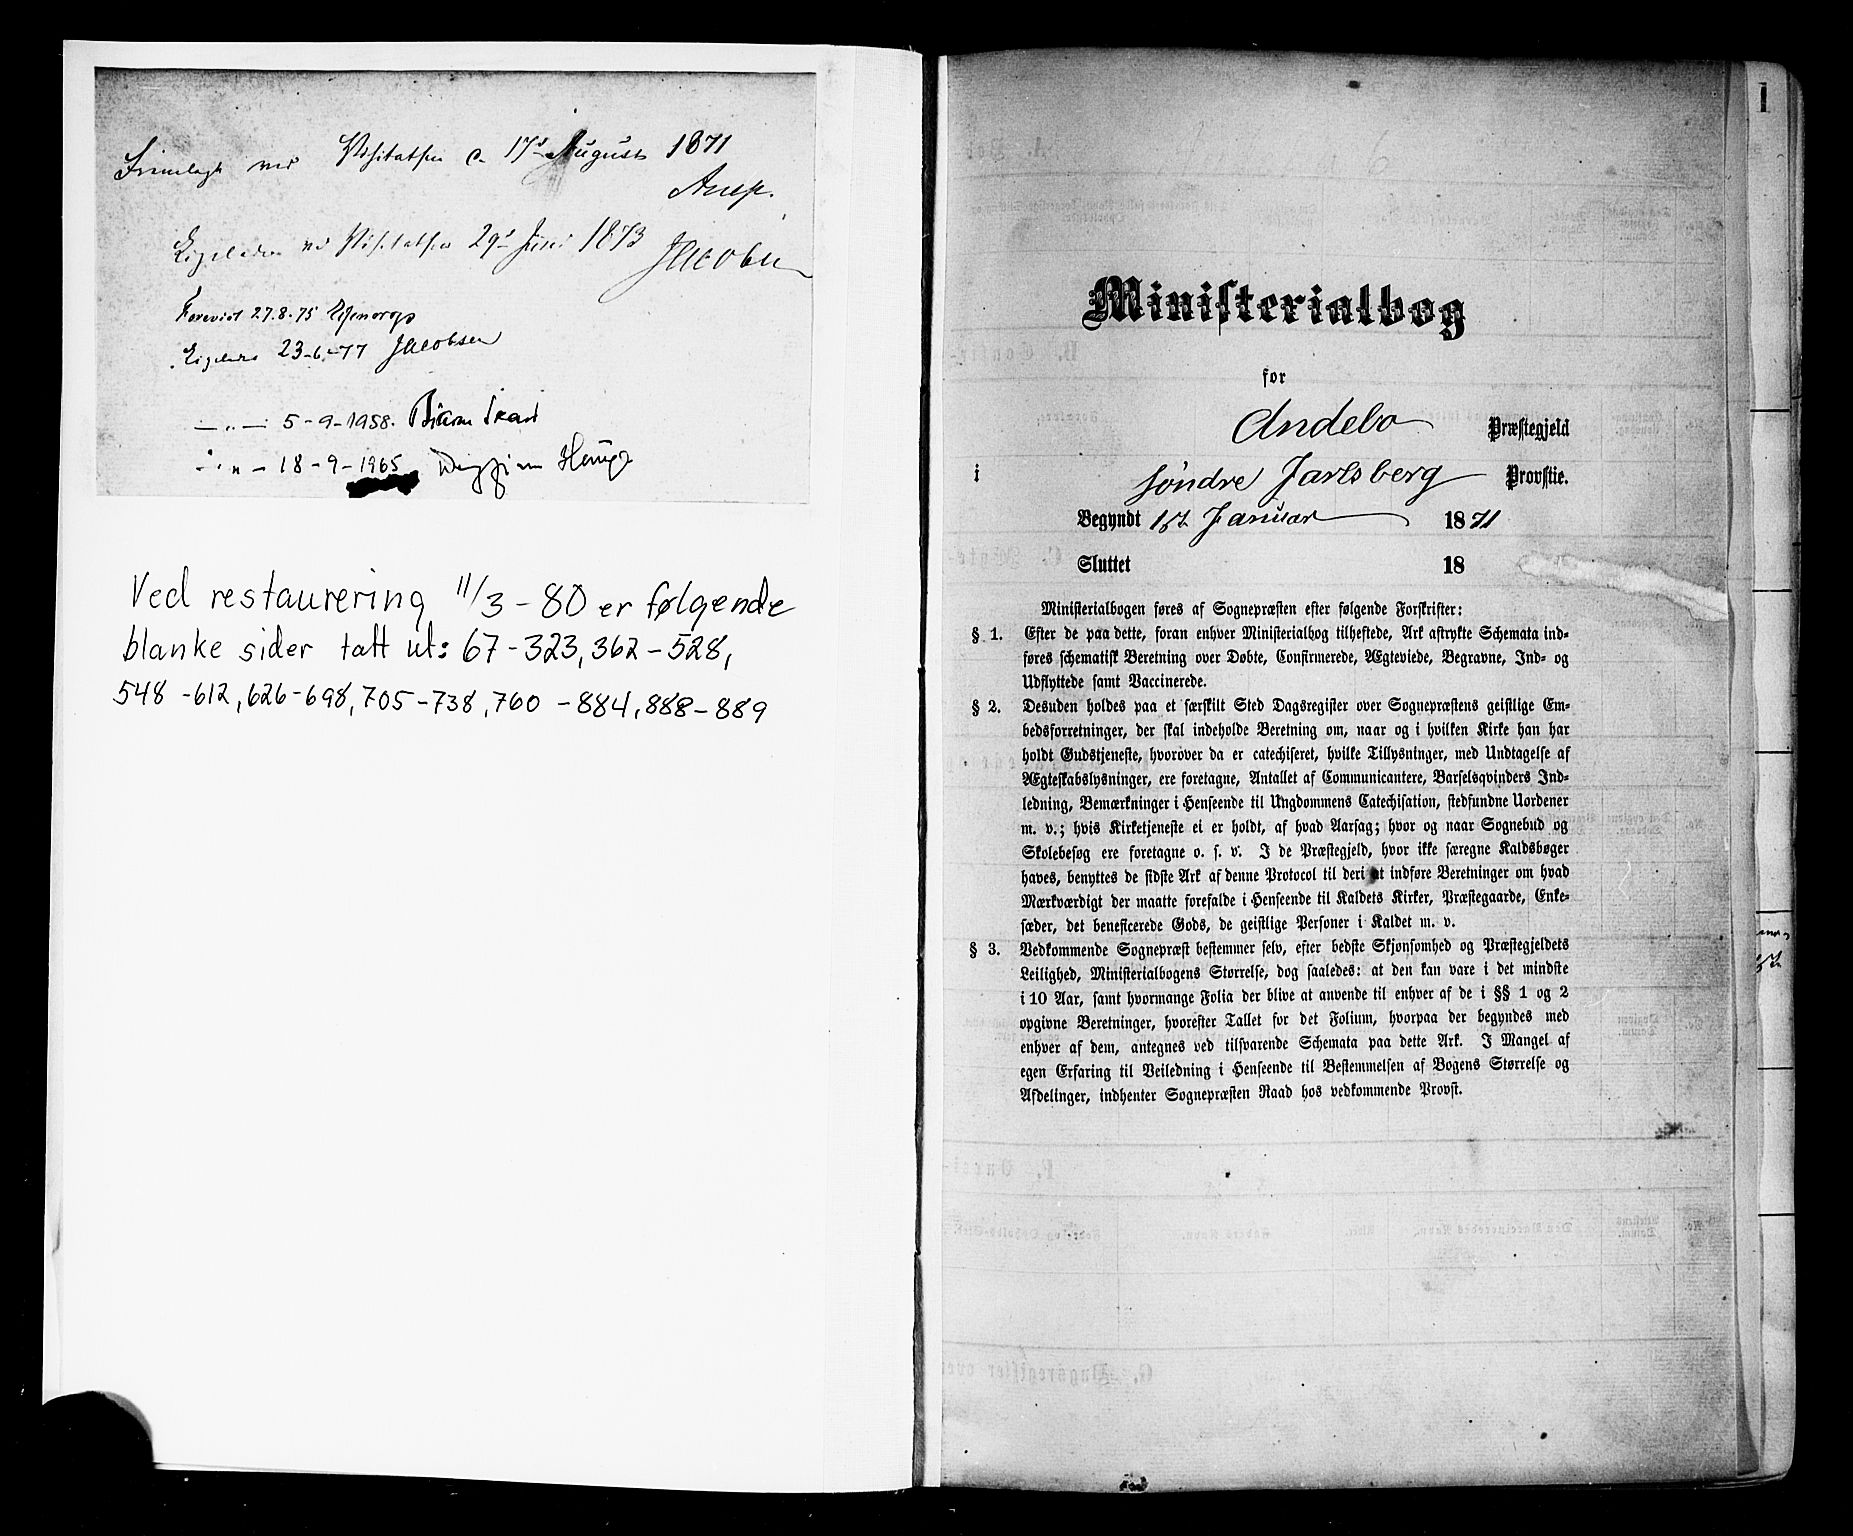 Fremlagt ved Visitatsen d. 17de August 1871
Arup.
Ligeledes ved Visitatsen 29de Juni 1873 JJacobsen
Forevist 27.8.75
Ligeledes 23-6-77 JJacobsen
— „ — 5-9-1958.
— „ — 18-9-1965 Hauge
Ved restaurering 11/3-80 er følgende
blanke sider tatt ut: 67-323, 362-528,
548-612, 626-698, 705-738, 760-884, 888-889
Ministerialbog
for
Andebo Præstegjeld
i Søndre Jarlsberg Provstie.
Begyndt 1st Januar 1871
Sluttet 18
Ministerialbogen føres af Sognepræsten efter følgende Forskrifter:
§ 1. Efter de paa dette, foran enhver Ministerialbog tilheftede, Ark aftrykte Schemata ind-
føres schematisk Beretning over Døbte, Confirmerede, Ægteviede, Begravne, Ind- og
Udflyttede samt Vaccinerede.
§ 2. Desuden holdes paa et særskilt Sted Dagsregister over Sognepræstens geistlige Em-
bedsforretninger, der skal indeholde Beretning om, naar og i hvilken Kirke han har
holdt Gudstjeneste, hvorover da er catechiseret, hvilke Tillysninger, med Undtagelse af
Ægteskabslysninger, ere foretagne, Antallet af Communicantere, Barselqvinders Ind-
ledning, Bemærkninger i Henseende til Ungdommens Catechisation, stedfundne Uordener
m. v.; hvis Kirketjeneste ei er holdt, af hvad Aarsag; hvor og naar Sognebud og
Skolebesøg ere foretagne o. s. v. I de Præstegjeld, hvor ikke særegne Kaldsbøger
haves, benyttes de sidste Ark af denne Protocol til deri at indføre Beretninger om hvad
Mærkværdigt der maatte forefalde i Henseende til Kaldets Kirker, Præstegaarde, Enke-
sæder, det beneficerede Gods, de geistlige Personer i Kaldet m. v.
§ 3. Vedkommende Sognepræst bestemmer selv, efter bedste Skjønsomhed og Præstegjeldets
Leilighed, Ministerialbogens Størrelse, dog saaledes: at den kan vare i det mindste
i 10 Aar, samt hvormange Folia der blive at anvende til enhver af de i §§ 1 og 2
opgivne Beretninger, hvorefter Tallet for det Folium, hvorpaa der begyndes med
enhver af dem, antegnes ved tilsvarende Schemata paa dette Ark. I Mangel af
egen Erfaring til Veiledning i Henseende til Bestemmelsen af Bogens Størrelse og
Afdelinger, indhenter Sognepræsten Raad hos vedkommende Provst.
1